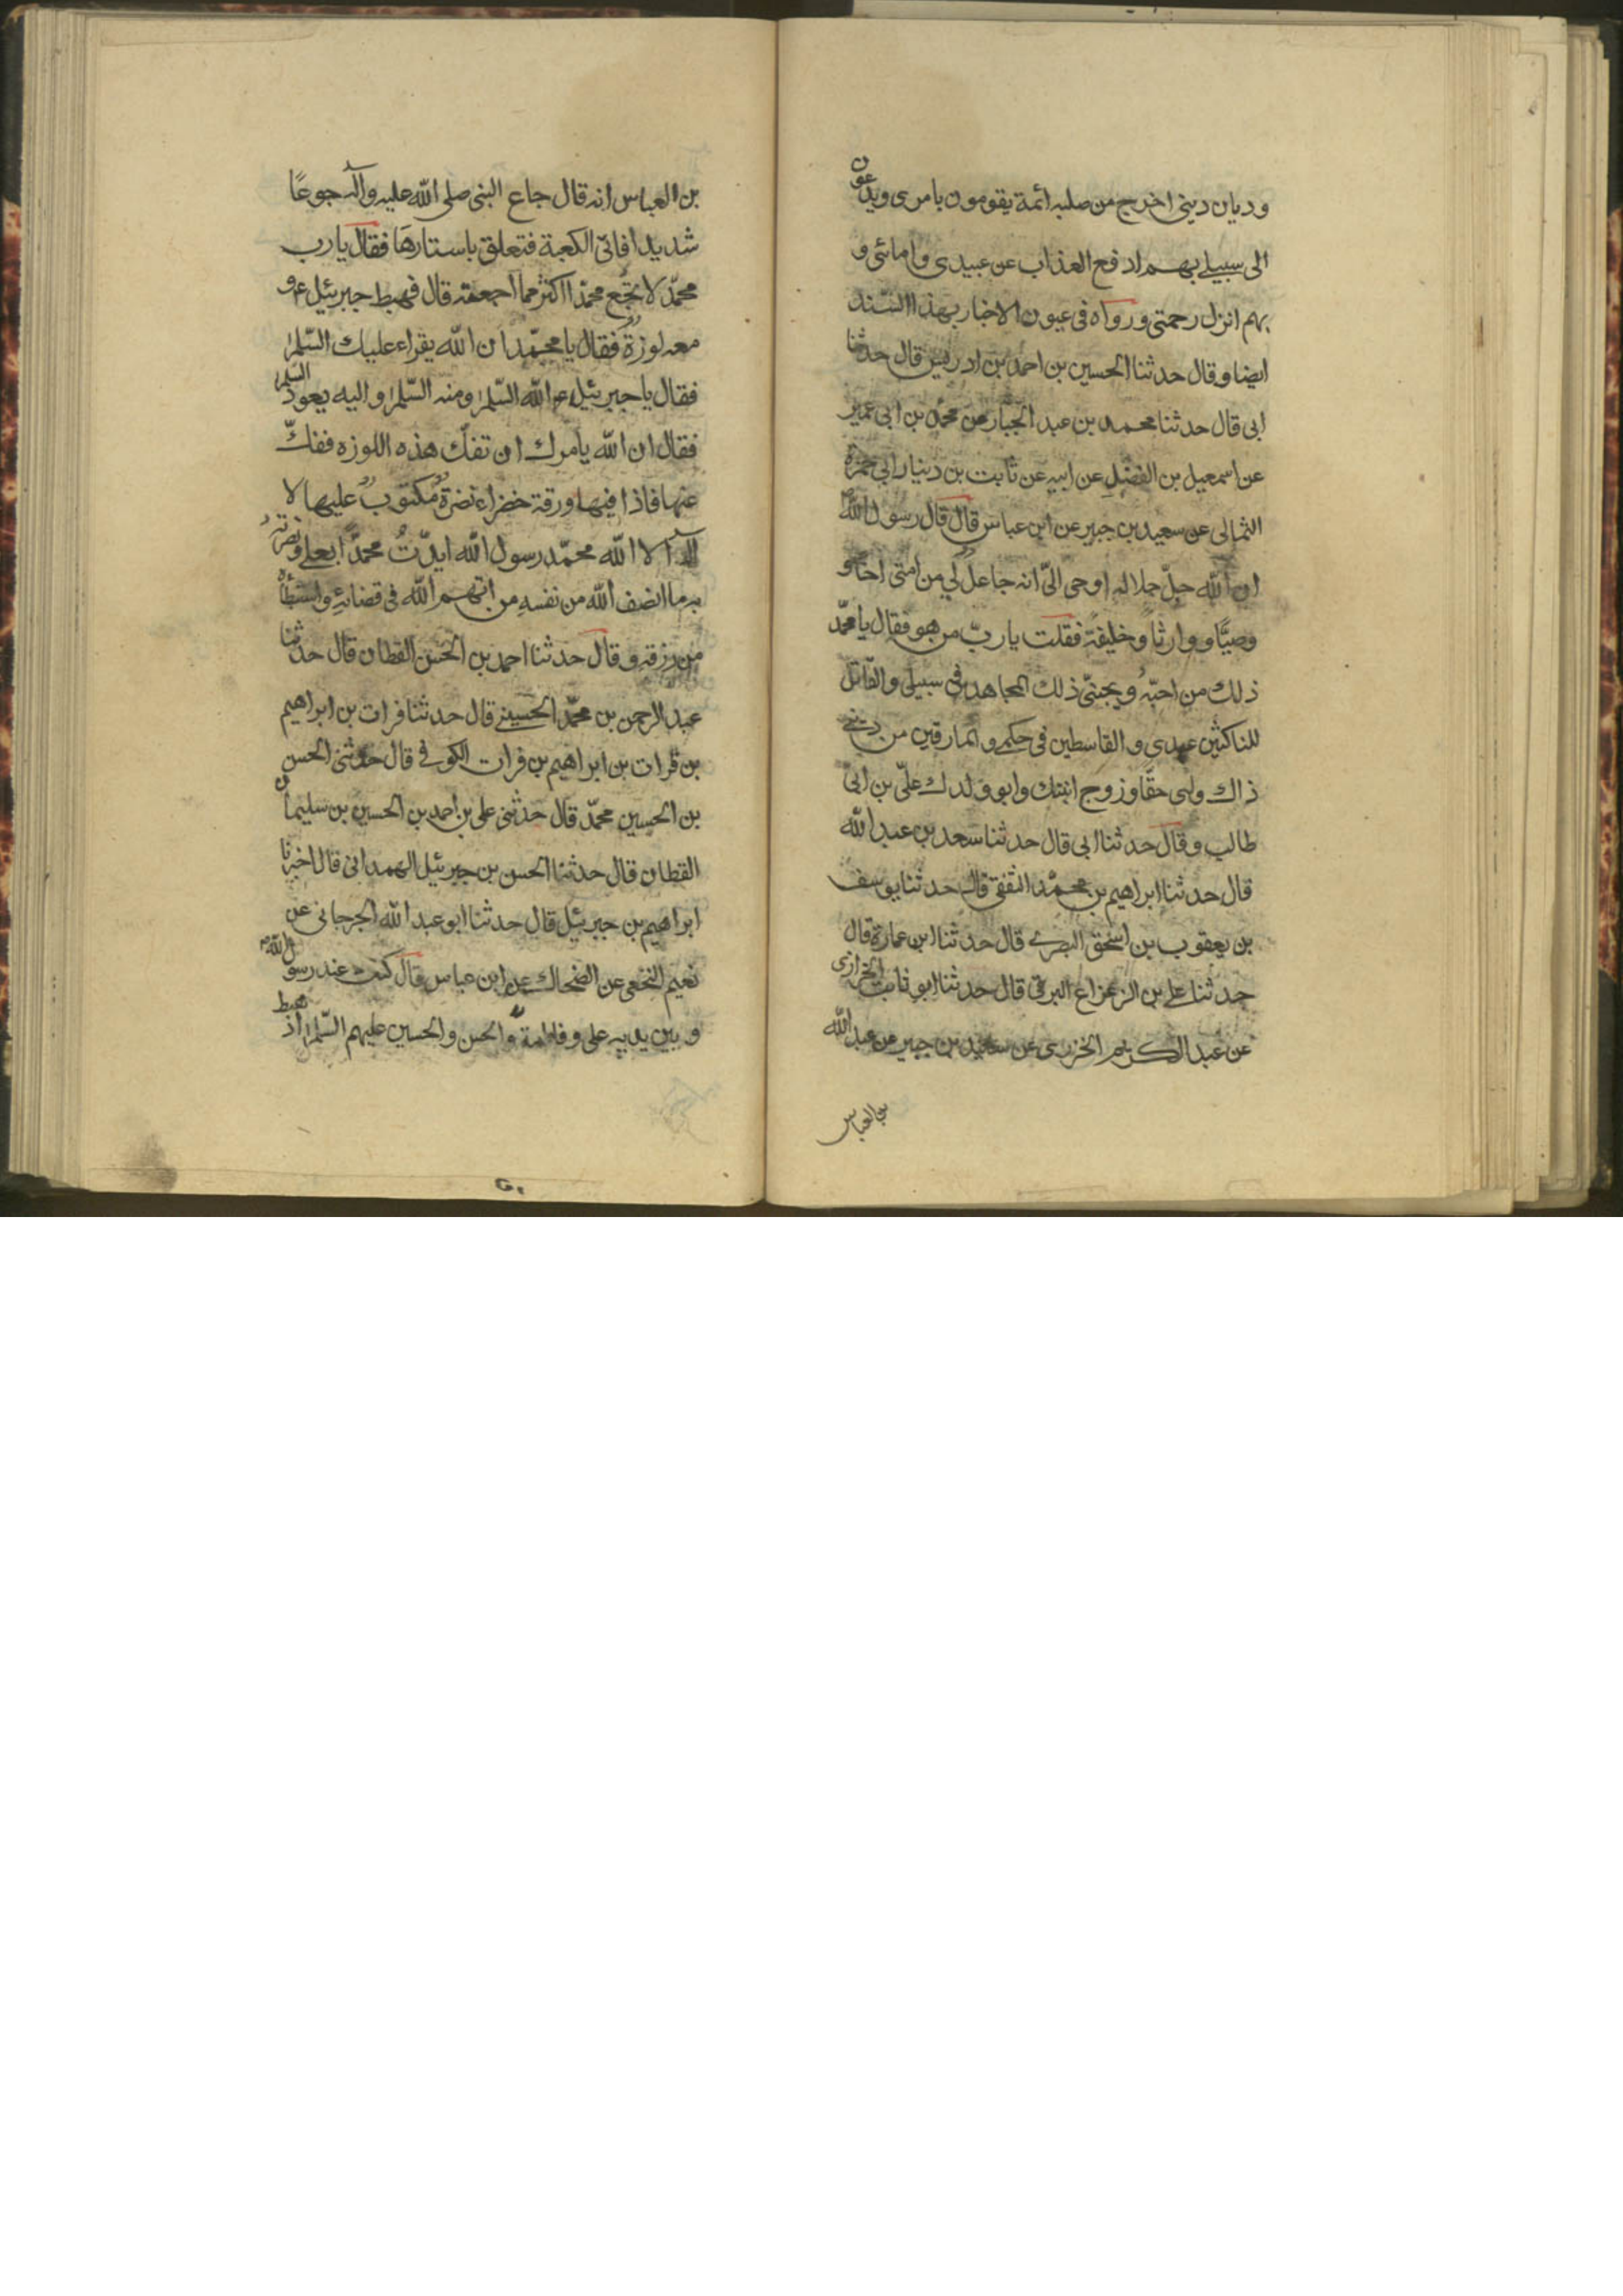 وديان ديني اخرج من صلبه ائمة يقومون بامرى ويدعون
الى سبيلے بهم ادفع العذاب عن عبيدى وامائى و
بهم انزل رحمتى ورواه فى عيون الاخبار بهذا السند
ايضا وقال حدثنا الحسين بن احمد بن ادريس قال حدثنا
ابى قال حدثنا محمد بن عبد الجبار عن محمد بن ابى عمير
عن اسمعيل بن الفضل عن ابيه عن ثابت بن دينار ابى حمزة
الثمالى عن سعيد بن جبير عن ابن عباس قال قال رسول الله ص
ان الله جلّ جلاله اوحى الىّ انه جاعل لي من امتى اخًا و
وصيًّا ووارثاً وخليفة فقلت يا ربّ من هو فقال يا محمّد
ذلك من احبّه ويحبنّى ذلك المجاهد فى سبيلى والقاتل
للناكثين عهدى والقاسطين فى حكمى والمارقين من دينے
ذاك وليى حقًّا وزوج ابنتك وابو ولدك علّى بن ابى
طالب وقال حدثنا ابى قال حدثنا سعد بن عبد الله
قال حدثنا ابراهيم بن محمّد الثقفى قال حدثنا يوسف
بن يعقوب بن اسحق البصرے قال حدثنا ابن عمارة قال
حدثنا علے بن الزعزاع البرقى قال حدثنا ابو ثابت الخرازى
عن عبد الكريم الخزرى عن سعيد بن جبير عن عبد الله
بن العباس
بن العباس انه قال جاع النبى صلى الله عليه وآله جوعًا
شديدا فاتى الكعبة فتعلق باستارها فقال يا رب
محمّد لا تجّع محمّدا اكثر مما اجعته قال فهبط جبرئيل ع و
معه لوزة فقال يا محمّد ان الله يقراء عليك السّلم
فقال يا جبرئيل الله السّلم ومنه السّلم واليه يعود السّلم
فقال ان الله يامرك ان تفك هذه اللوزه ففكّ
عنها فاذا فيها ورقة خضراء نضرة مكتوب عليها لا
اله الا الله محمّد رسول الله ايدّتُ محمّدًا بعلے ونصرته
به ما انصف الله من نفسه من اتهم الله فى قضائه واستبطأه
من رزقه وقال حدثنا احمد بن الحسن القطان قال حدثنا
عبد الرحمن بن محمّد الحسينے قال حدثنا فرات بن ابراهيم
بن فرات بن ابراهيم بن فرات الكوفے قال حدثنى الحسن
بن الحسين محمّد قال حدثنى على بن احمد بن الحسين بن سليمان
القطان قال حدثنا الحسن بن جبرئيل الهمدانى قال اخبرنا
ابراهيم بن جبرئيل قال حدثنا ابو عبد الله الجرجانى عن
نعيم النخعى عن الضحاك عن ابن عباس قال كنت عند رسول الله ص
و بين يديه على وفاطمة والحسن والحسين عليهم السّلم اذ هبط